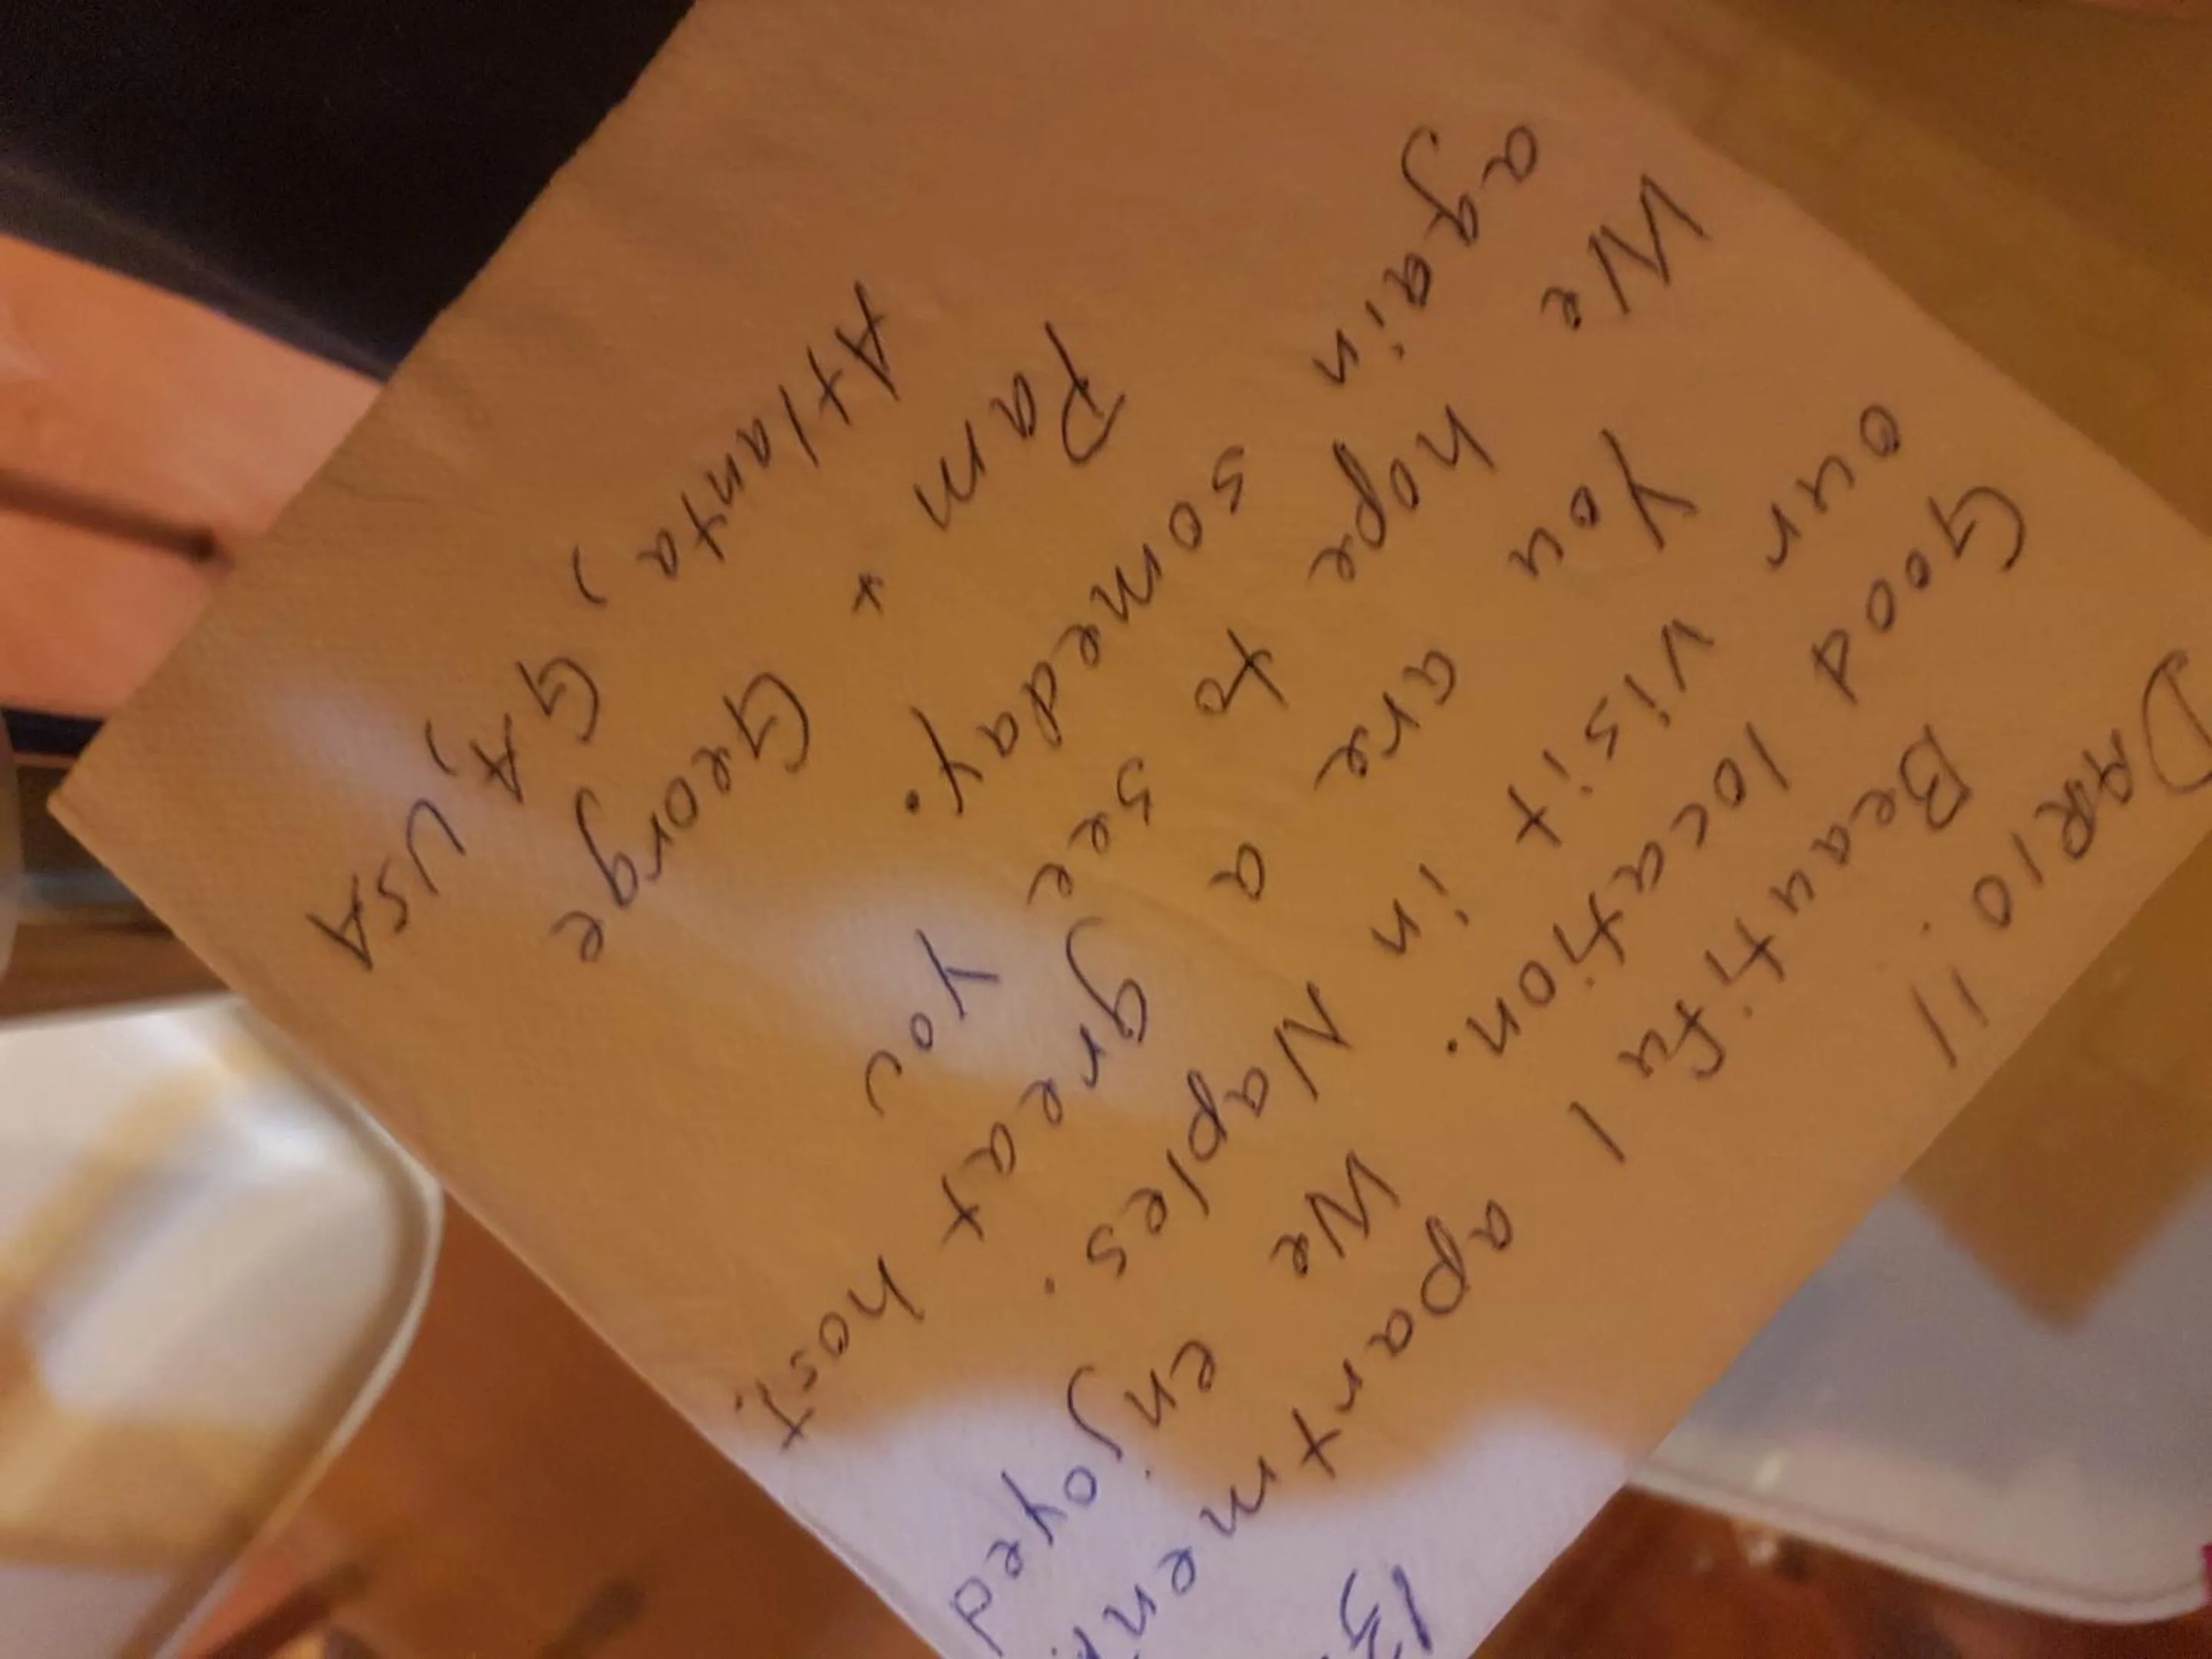 13
DARIO !!
Beautiful apartment.
Good location. We enjoyed
our visit in Naples.
You are a great host.
We hope to see you
again someday.
Pam + George
Atlanta, GA, USA